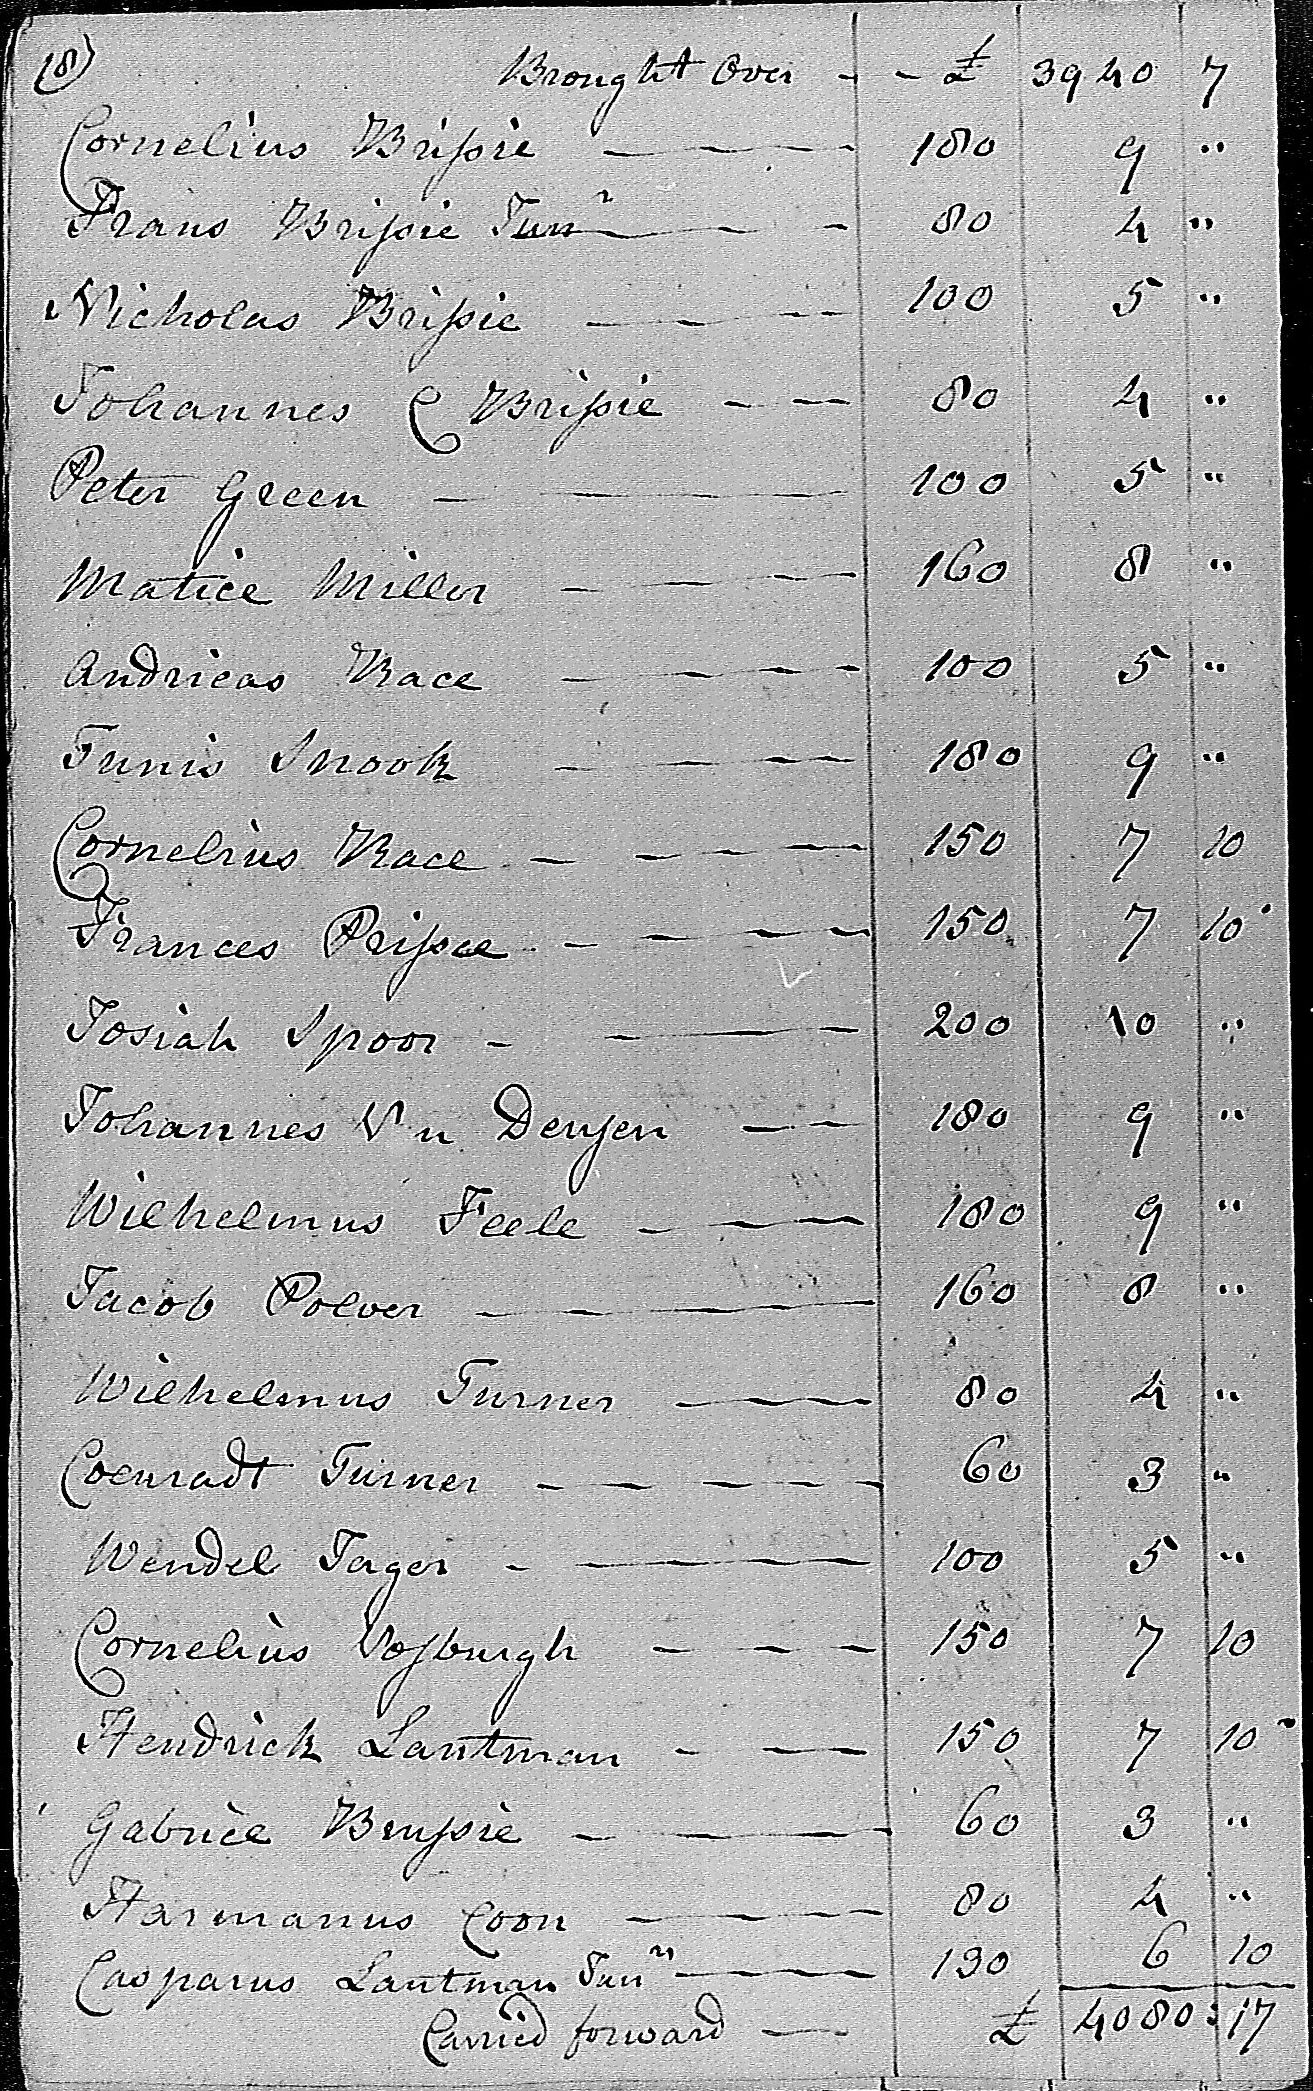 (8) Brought Over - - £ 3940 7
Cornelius Brissie — 180 9 "
Frans Brissie Junr — 80 4 "
Nicholas Brissie — 100 5 "
Johannes C Brissie — 80 4 "
Peter Green — 100 5 "
Matice Miller — 160 8 "
Andrieas Race — 100 5 "
Tunis Snook — 180 9 "
Cornelius Race — 150 7 10
Frances Prissce — 150 7 10
Josiah Spoor — 200 10 "
Johannes Vn Deusen — 180 9 "
Wilhelmus Feele — 180 9 "
Jacob Polver — 160 8 "
Wilhelmus Turner — 80 4 "
Coenradt Turner — 60 3 "
Wendel Jager — 100 5 "
Cornelius Vosburgh — 150 7 10
Hendrick Lantman — 150 7 10
Gabriel Brussie — 60 3 "
Harmanus Coon — 80 4 "
Casparus Lantman Junr — 130 6 10
Carried forward — £ 4080:17